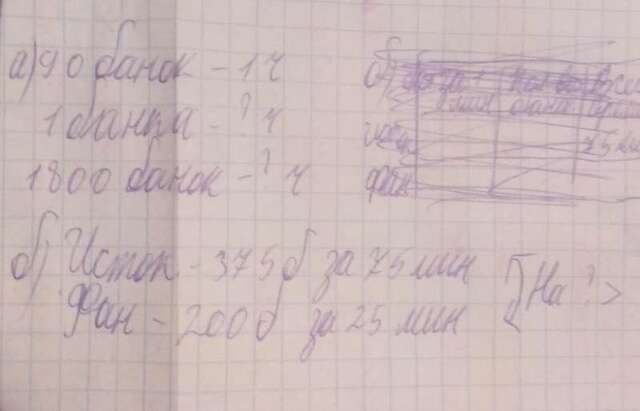 а) 90 банок - 1 ч
1 банка - ? ч
1800 банок - ? ч
б)
б) Исток - 375 б за 75 мин
Фан - 200 б за 25 мин
На ? >